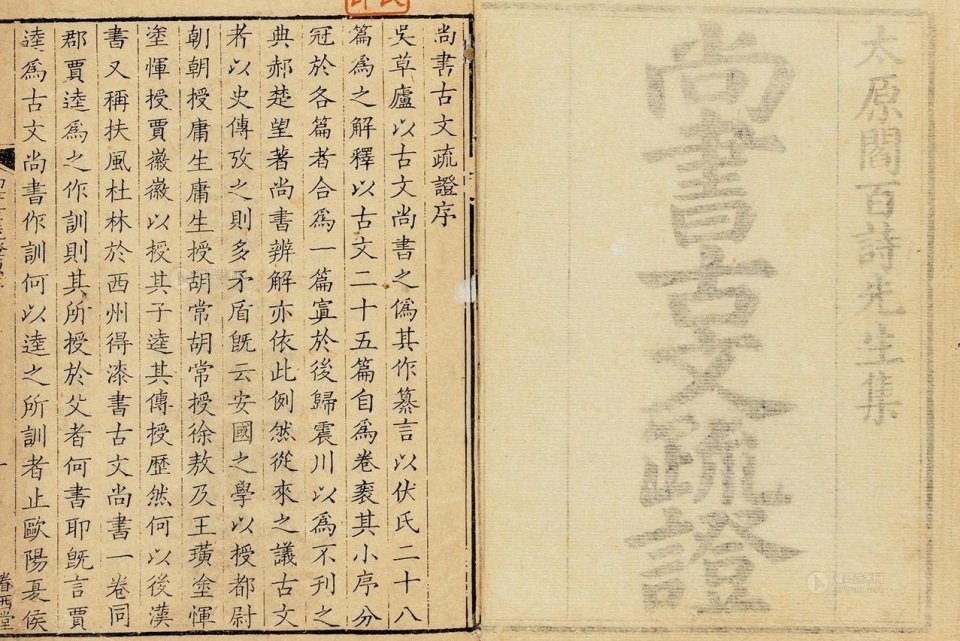 太原閻百詩先生集
尚書古文疏證
尚書古文疏證序
吳草廬以古文尚書之偽其作纂言以伏氏二十八
篇為之解釋以古文二十五篇自為卷袠其小序分
冠於各篇者合為一篇寘於後歸震川以為不刊之
典郝楚望著尚書辨解亦依此例然從來之議古文
者以史傳攷之則多矛盾既云安國之學以授都尉
朝朝授庸生庸生授胡常胡常授徐敖及王璜塗惲
塗惲授賈徽徽以授其子逵其傳授歷然何以後漢
書又稱扶風杜林於西州得漆書古文尚書一卷同
郡賈逵為之作訓則其所授於父者何書耶既言賈
逵為古文尚書作訓何以逵之所訓者止歐陽夏侯
眷西堂